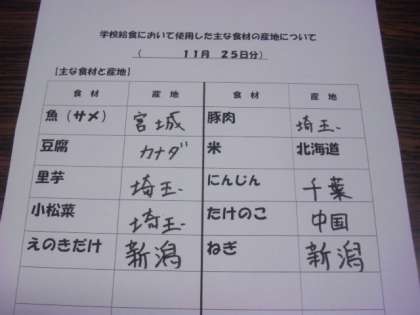 学校給食において使用した主な食材の産地について
( 11月 25日分)
【主な食材と産地】
食材 産地 食材 産地
魚(サメ) 宮城 豚肉 埼玉
豆腐 カナダ 米 北海道
里芋 埼玉 にんじん 千葉
小松菜 埼玉 たけのこ 中国
えのきだけ 新潟 ねぎ 新潟